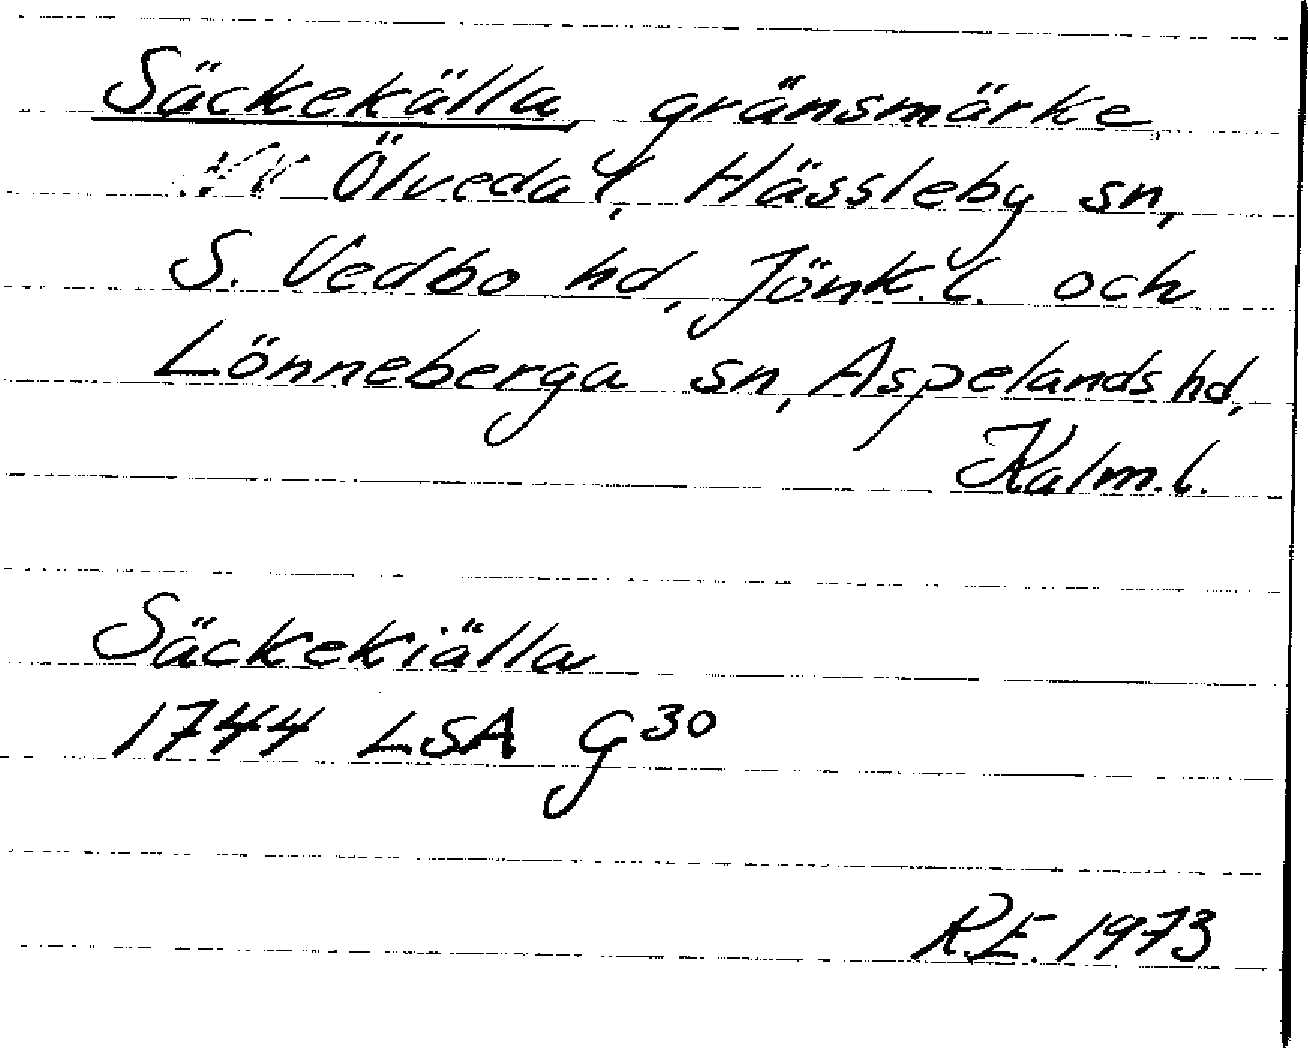 Säckekälla, gränsmärke,
Ölvedal, Hässleby sn,
S. Vedbo hd, Jönk.l. och
Lönneberga sn, Aspelands hd,
Kalm.l.
Säckekiälla
1744 LSA G30
R.E. 1973